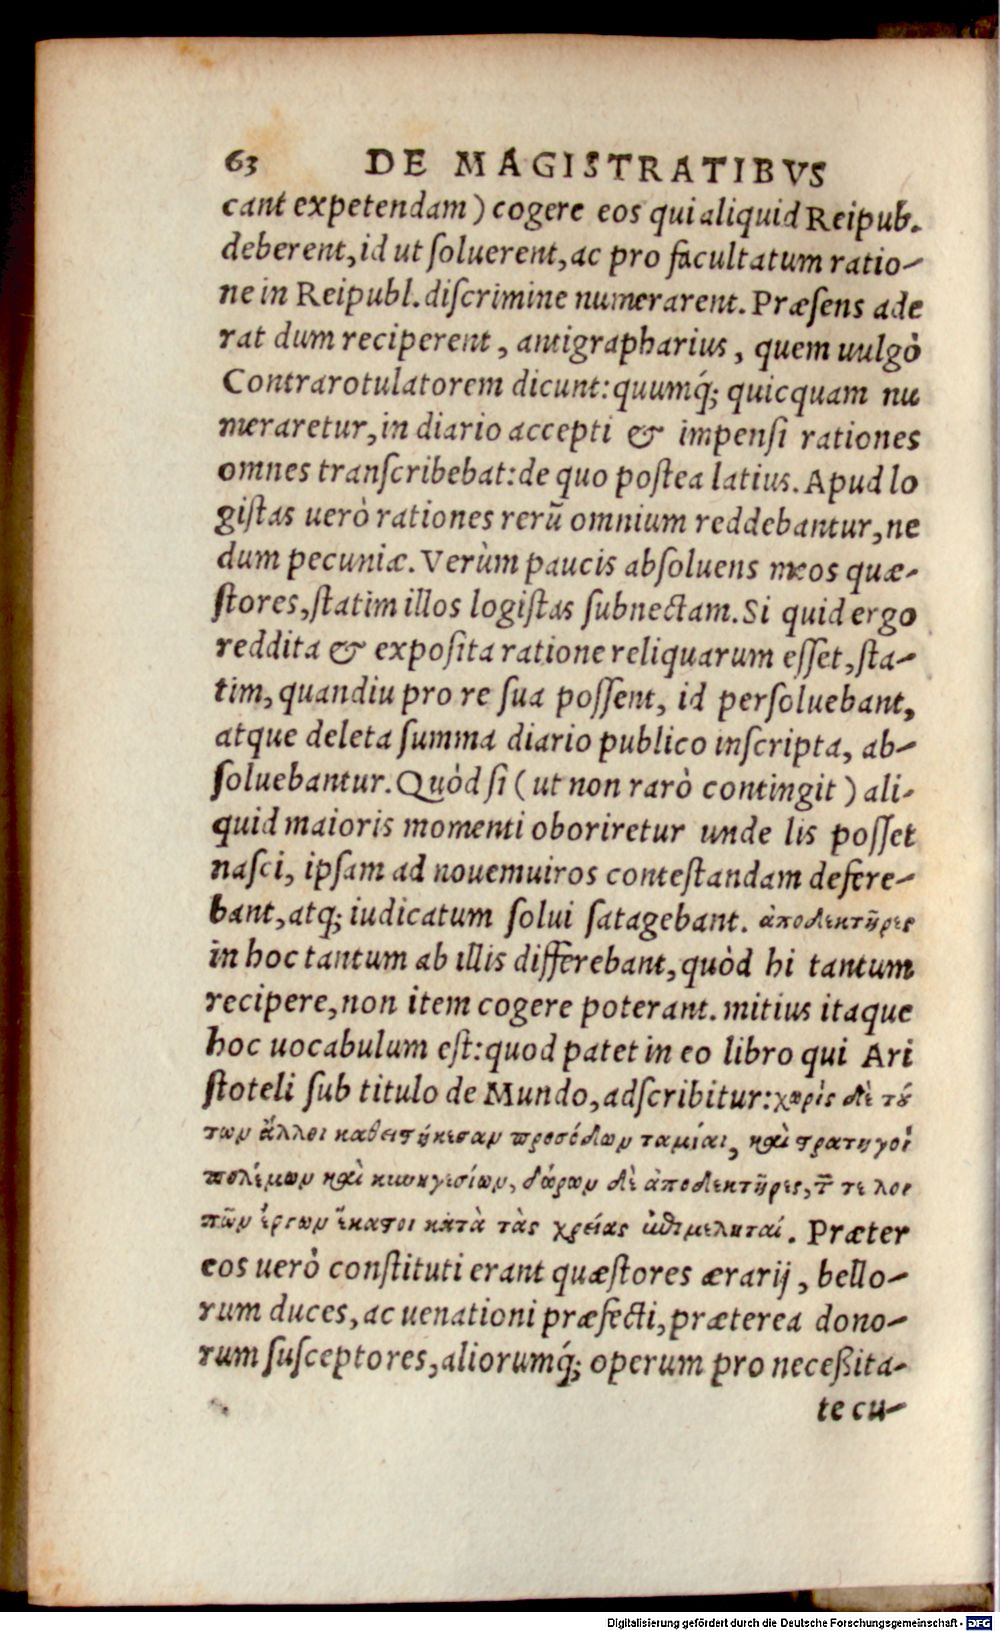 63 DE MAGISTRATIBVS
cant expetendam) cogere eos qui aliquid Reipub.
deberent, id ut ſoluerent, ac pro facultatum ratio-
ne in Reipubl. diſcrimine numerarent. Præſens ade
rat dum reciperent, antigrapharius, quem uulgò
Contrarotulatorem dicunt: quumq́; quicquam nu
meraretur, in diario accepti & impenſi rationes
omnes tranſcribebat: de quo poſtea latius. Apud lo
giſtas uerò rationes rerũ omnium reddebantur, ne
dum pecuniæ. Verùm paucis abſoluens meos quæ-
ſtores, ſtatim illos logiſtas ſubnectam. Si quid ergo
reddita & expoſita ratione reliquarum eſſet, ſta-
tim, quandiu pro re ſua poſſent, id perſoluebant,
atque deleta ſumma diario publico inſcripta, ab-
ſoluebantur. Quòd ſi (ut non rarò contingit) ali-
quid maioris momenti oboriretur unde lis poſſet
naſci, ipſam ad nouemuiros conteſtandam defere-
bant, atq; iudicatum ſolui ſatagebant. ἀποδεκτῆρες
in hoc tantum ab illis differebant, quòd hi tantum
recipere, non item cogere poterant. mitius itaque
hoc uocabulum eſt: quod patet in eo libro qui Ari
ſtoteli ſub titulo de Mundo, adſcribitur: χωρὶς δὲ τού
των ἄλλοι καθειστήκεσαν προσόδων ταμίαι, καὶ στρατηγοὶ
πολέμων καὶ κυνηγεσίων, δώρων δὲ ἀποδεκτῆρες, τῶν τε λοι
πῶν ἔργων ἕκαστοι κατὰ τὰς χρείας ἐπιμεληταί. Præter
eos uerò conſtituti erant quæſtores ærarij, bello-
rum duces, ac uenationi præfecti, præterea dono-
rum ſuſceptores, aliorumq́; operum pro neceßita-
te cu-
Digitalisierung gefördert durch die Deutsche Forschungsgemeinschaft - DFG